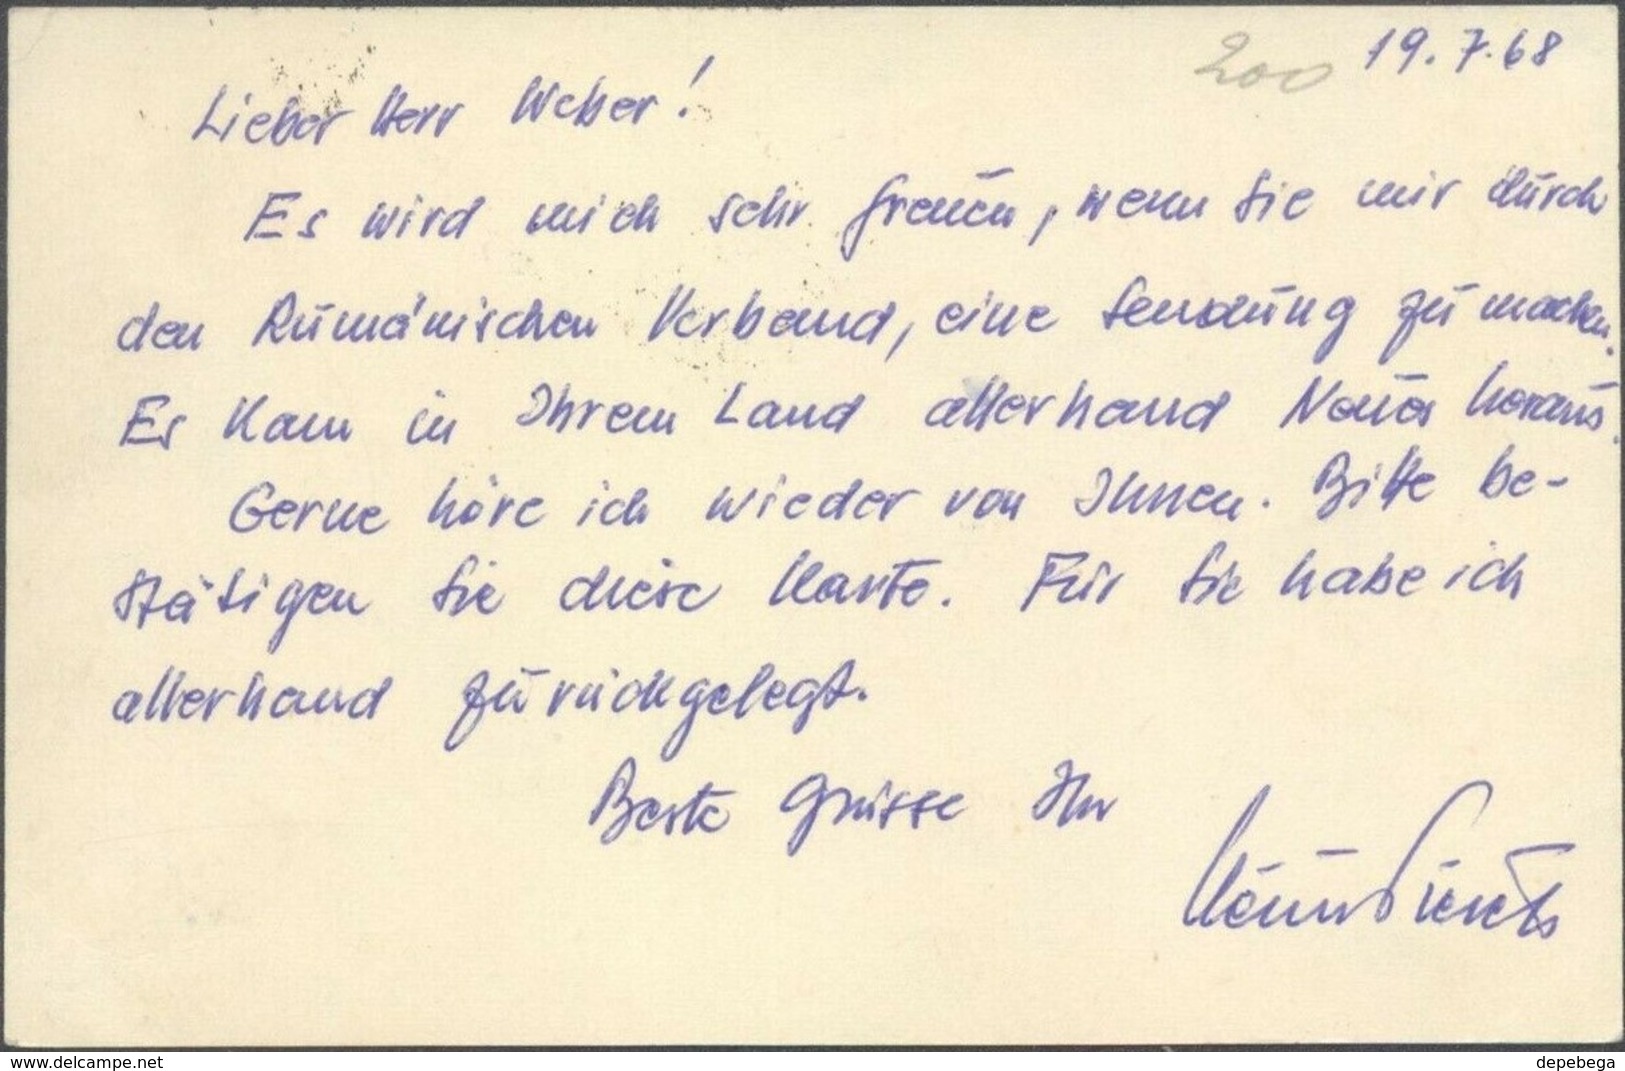 200 19.7.68
Lieber Herr Weber!
Es wird mich sehr freuen, wenn Sie mir durch
den Rumänischen Verband, eine Sendung zu machen.
Es kam in Ihrem Land allerhand Neues heraus.
Gerne höre ich wieder von Ihnen. Bitte be-
stätigen Sie diese Karte. Für Sie habe ich
allerhand zurückgelegt.
Beste Grüsse Ihr
www.delcampe.net
depebega